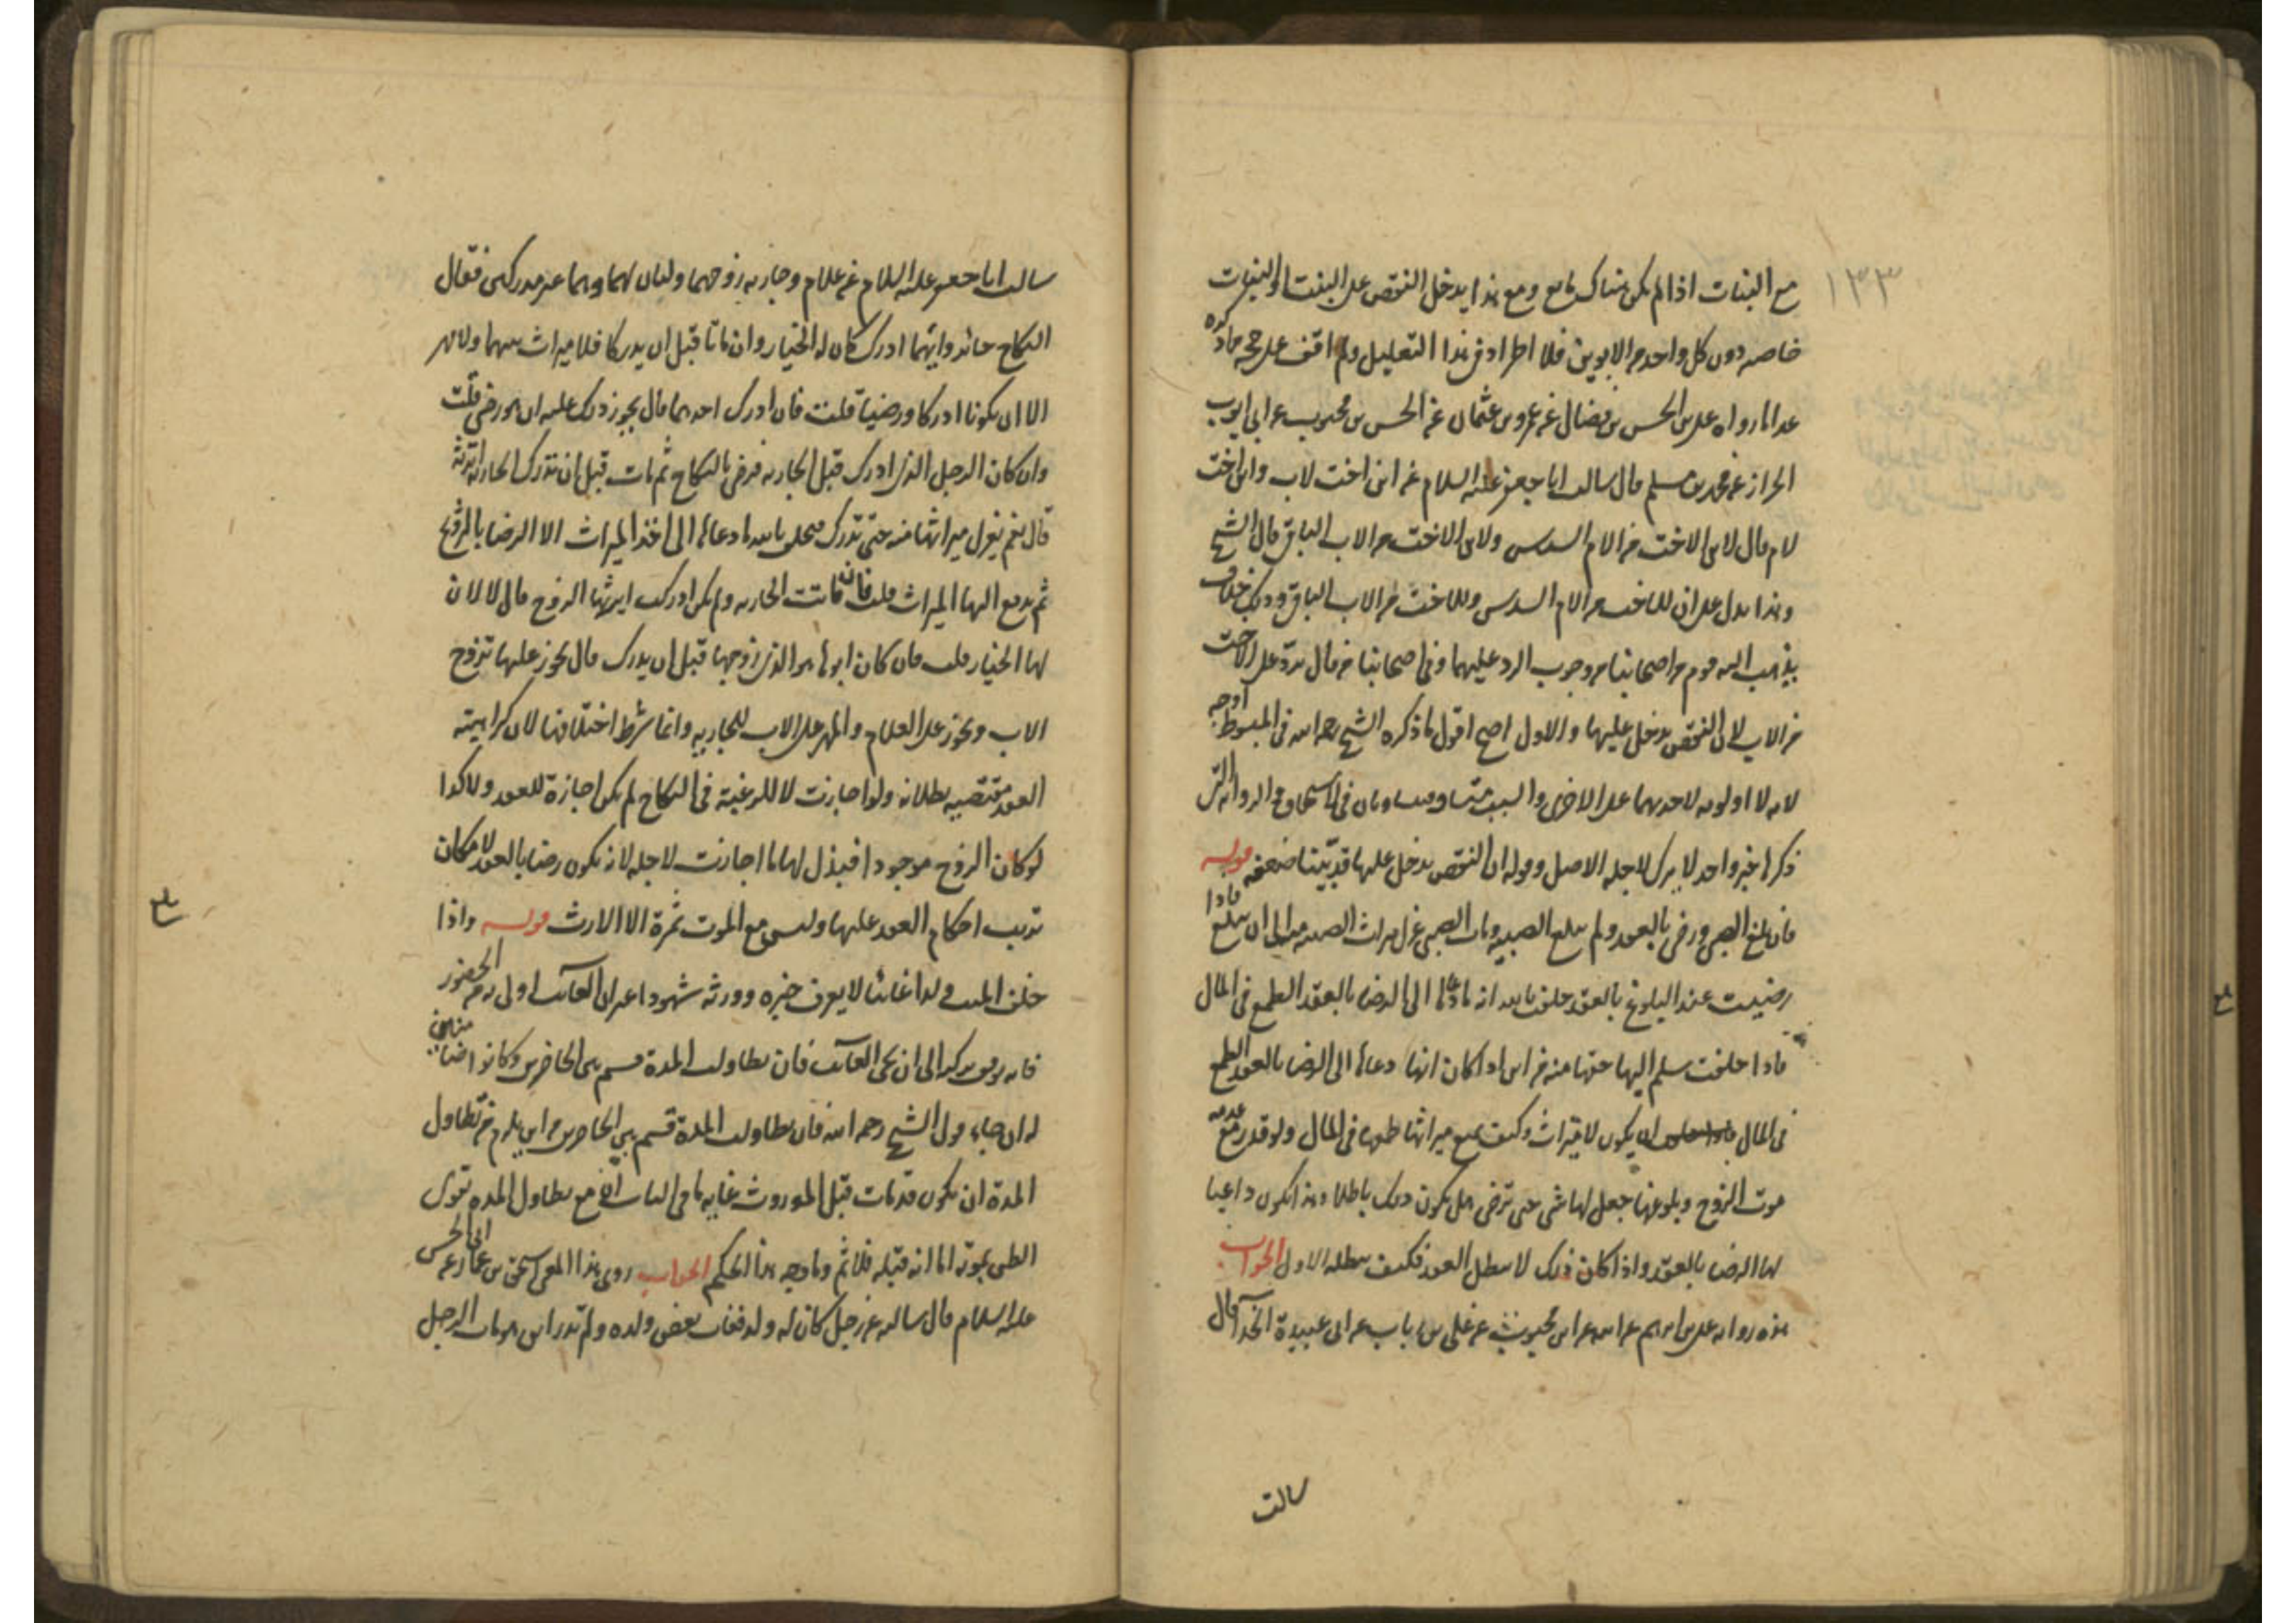 ١٣٣
مع البنات اذا لم يكن هناك مانع ومع هذا يدخل النقص على البنت او البنات
خاصه دون كل واحد من الابوين فلا اطراد فى هذا التعليل ولم اقف على حجه ماذكره
عدا ما رواه على بن الحسن بن فضال عن عمرو بن عثمان عن الحسن بن محبوب عن ابى ايوب
الخراز عن محمد بن مسلم قال سالت ابا جعفر عليه السلام عن ابن اخت لاب وابن اخت
لام قال لابن الاخت من الام السدس ولابن الاخت من الاب الباقى قال الشيخ
وهذا يدل على ان للاخت من الام السدس وللاخت من الاب الباقى وذلك خلاف
يذهب اليه قوم من اصحابنا من وجوب الرد عليهما وفى اصحابنا من قال يردّ على الاخت
من الاب لان النقص يدخل عليها والاول اصح اقول ما ذكره الشيخ رحمه الله فى المبسوط اوجه
لانه لا اولويه لاحديهما على الاخرى والسبب متساويتان فى الاستحقاق والروايه التى
ذكرها خبر واحد لا يترك لاجله الاصل وقوله ان النقص يدخل عليها قد بيّنا ضعفه قوله
فان بلغ الصبى ورضى بالعقد ولم يبلغ الصبيه ومات الصبى عزل ميراث الصبيه منه الى ان يبلغ فاذا
رضيت عند البلوغ بالعقد حلفت بالله انه ما دعاها الى الرضا بالعقد الطمع فى المال
فاذا حلفت سلم اليها حقها منه من اين اذا كان انها دعاها الى الرضا بالعقد الطمع
فى المال ان يكون لا ميراث وكيف يمنع ميراثها طمعها فى المال ولو قدر مع عدمه
موت الزوج وبلوغها جعل لها شى حتى ترضى هل يكون ذلك باطلا وهذا يكون داعيا
لها الرضا بالعقد واذا كان ذلك لا يبطل العقد فكيف يبطله الاول الجواب
هذه روايه على بن ابرهيم عن ابيه عن ابن محبوب عن على بن رباب عن ابى عبيدة الحذا قال
سالت
سالت ابا جعفر عليه السلام عن غلام وجاريه زوجهما وليان لهما وهما غير مدركين فقال
النكاح جائز وايّهما ادرك كان له الخيار وان ماتا قبل ان يدركا فلا ميراث بينهما ولا مهر
الا ان يكونا ادركا ورضيا قلت فان ادرك احدهما قال يجوز ذلك عليه ان هو رضى قلت
وان كان الرجل الذى ادرك قبل الجاريه فرضى بالنكاح ثم مات قبل ان تدرك الجاريه اترثه
قال نعم يعزل ميراثها منه حتى تدرك فتحلف بالله ما دعاها الى اخذ الميراث الا الرضا بالتزويج
ثم يدفع اليها الميراث قلت فان ماتت الجاريه ولم يكن ادركت ايرثها الزوج قال لا لان
لها الخيار قلت فان كان ابوها هو الذى زوجها قبل ان يدرك قال يجوز عليها تزوج
الاب ويجوز على الغلام والمهر على الاب للجاريه وانما شرط اختلافها لان كراهيته
العقد مقتضيه بطلانه ولو اجازت لا للرغبة فى النكاح لم يكن اجازة للعقد ولا كذا
لو كان الزوج موجودا فبذل لها ما اجازت لاجله لانه يكون رضا بالعقد لامكان
ترتب احكام العقد عليها وليس مع الموت ثمرة الا الارث قوله واذا
خلف الميت ولدا غائبا لا يعرف خبره وورثه شهودا غير ان الغائب اولى به من الحضور
فانه يوقف تركته الى ان يجى الغائب فان تطاولت المدة قسم بين الحاضرين وكانوا ضامنين
له ان جاء قول الشيخ رحمه الله فان تطاولت المدة قسم بين الحاضرين من اين يلزم من تطاول
المدة ان يكون قد مات قبل الموروث غايه ما فى الباب انه مع تطاول المده تقوى
الظن بموته اما انه قبله فلا ثم وما وجه هذا الحكم الجواب روى هذا المعنى اسحق بن عمار عن ابى الحسن
عليه السلام قال سالته عن رجل كان له ولد فغاب بعض ولده ولم يدر اين هو ومات الرجل